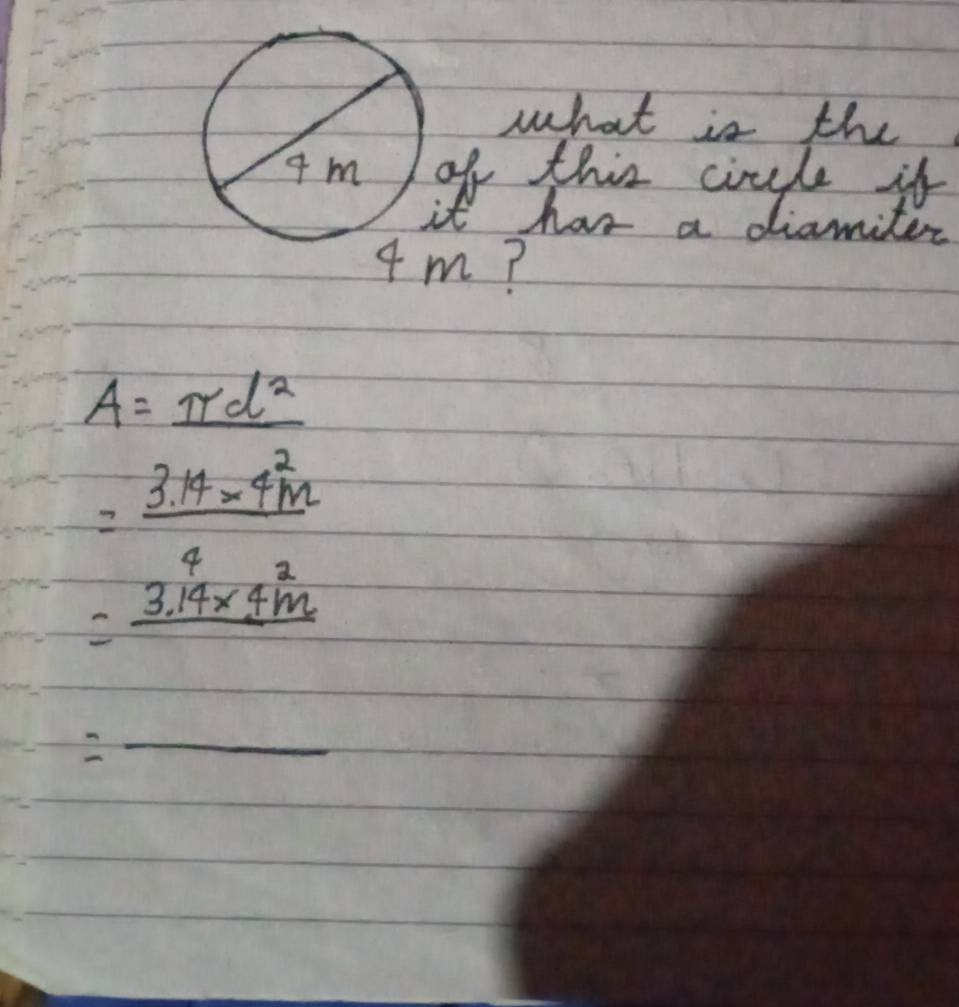 what is the
4 m
of this circle if
it has a diamiter
4 m ?
A = πd²
= 3.14 × 4²m
4
= 3.14 × 4²m
=